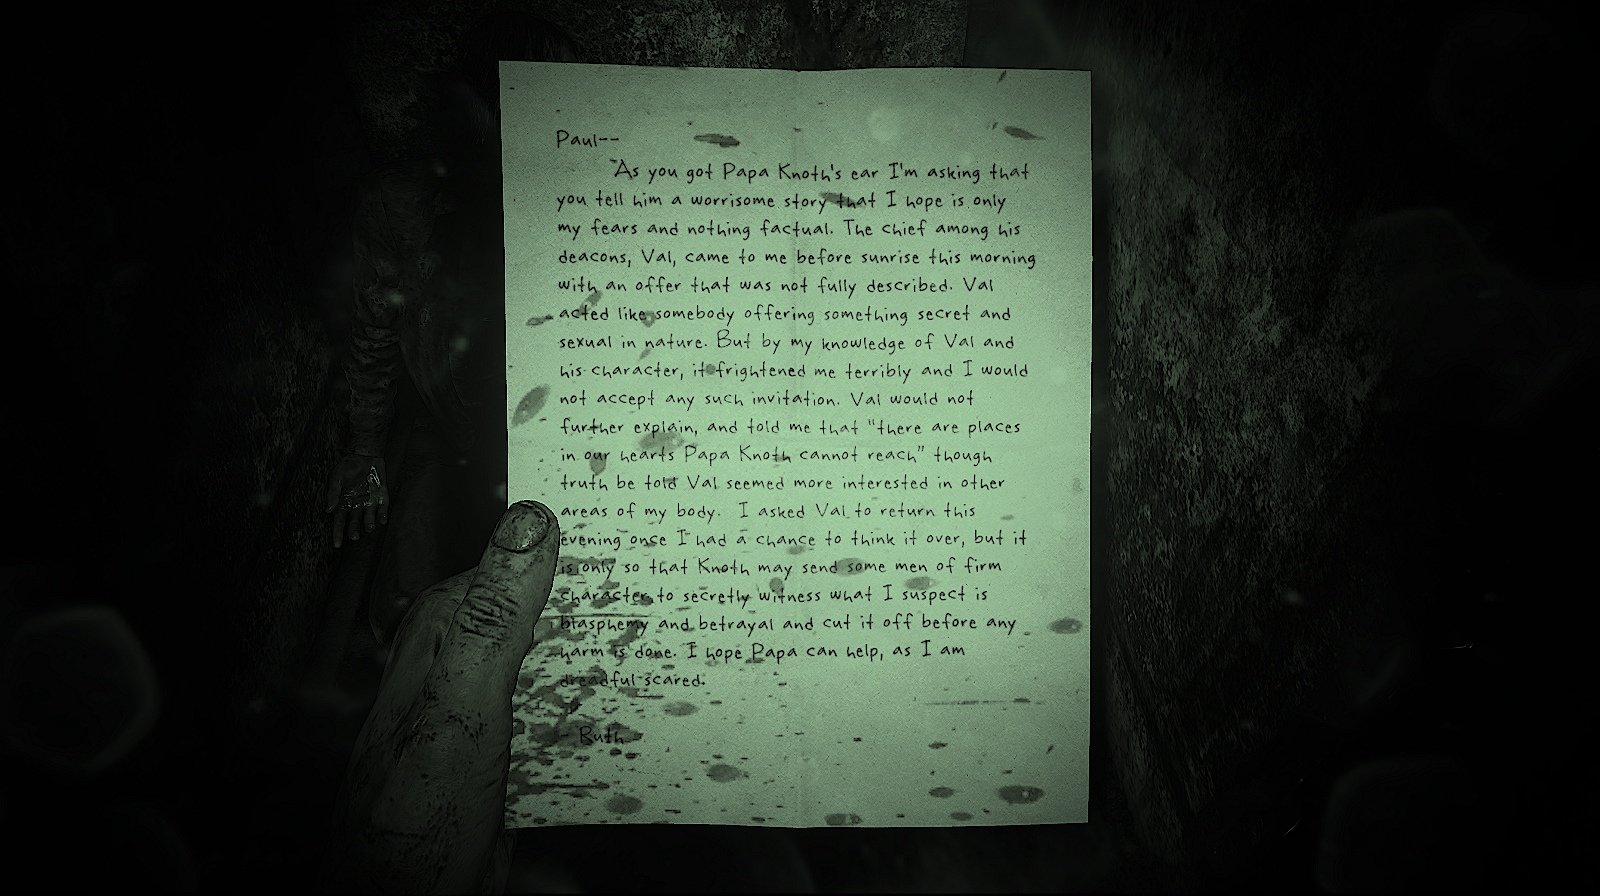 Paul--
As you got Papa Knoth's ear I'm asking that
you tell him a worrisome story that I hope is only
my fears and nothing factual. The chief among his
deacons, Val, came to me before sunrise this morning
with an offer that was not fully described. Val
acted like somebody offering something secret and
sexual in nature. But by my knowledge of Val and
his character, it frightened me terribly and I would
not accept any such invitation. Val would not
further explain, and told me that "there are places
in our hearts Papa Knoth cannot reach" though
truth be told Val seemed more interested in other
areas of my body. I asked Val to return this
evening once I had a chance to think it over, but it
is only so that Knoth may send some men of firm
character to secretly witness what I suspect is
blasphemy and betrayal and cut it off before any
harm is done. I hope Papa can help, as I am
dreadful scared.
- Ruth